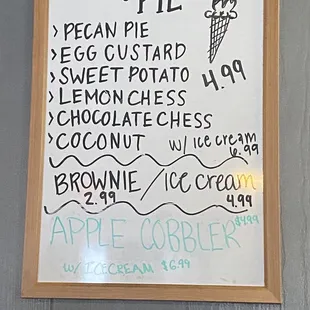 PIE
> PECAN PIE
> EGG CUSTARD
> SWEET POTATO 4.99
> LEMON CHESS
> CHOCOLATE CHESS
> COCONUT w/ ice cream
6.99
BROWNIE / Ice cream
2.99 4.99
APPLE COBBLER $4.99
w/ ICECREAM $6.99